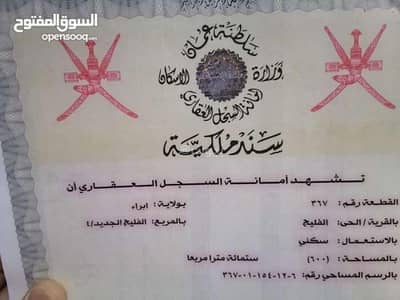 السوق المفتوح
سلطنة عمان
وزارة الاسكان
أمانة السجل العقاري
سند ملكية
تشهد أمانة السجل العقاري أن
القطعة رقم: ٣٦٧ بولاية: ابراء
بالقرية / الحي: الفليج بالمربع: الفليج الجديد/٤
بالاستعمال: سكني
بالمساحة: (٦٠٠) ستمائة مترا مربعا
بالرسم المساحي رقم: ١٢-٦-١٥٤-٠١-٣٦٧